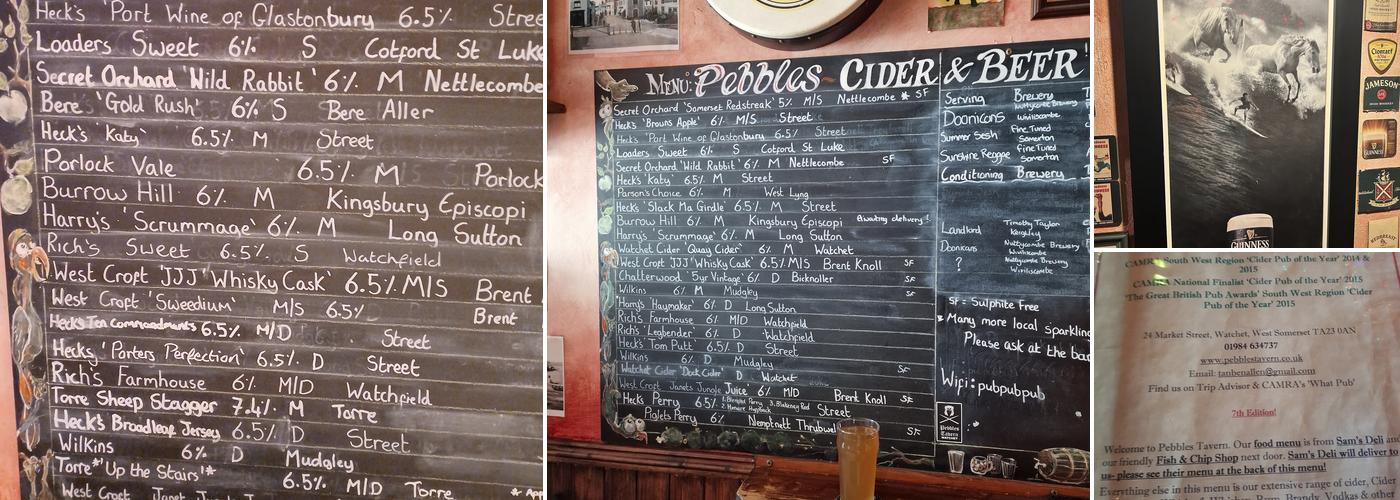 Heck's 'Port Wine of Glastonbury 6.5% Stree
Loaders Sweet 6% S Cotford St Luke
Secret Orchard 'Wild Rabbit' 6% M Nettlecombe
Bere 'Gold Rush' 6% S Bere Aller
Heck's 'Katy' 6.5% M Street
Porlock Vale 6.5% M Porlock
Burrow Hill 6% M Kingsbury Episcopi
Harry's 'Scrummage' 6% M Long Sutton
Rich's Sweet 6.5% S Watchfield
West Croft 'JJJ' 'Whisky Cask' 6.5% M/S Brent
West Croft 'Sweedium' M/S 6.5% Brent
Heck's Ten Commandments 6.5% M/D Street
Hecks 'Porters Perfection' 6.5% D Street
Rich's Farmhouse 6% M/D Watchfield
Torre Sheep Stagger 7.4% M Torre
Heck's Broadleaf Jersey 6.5% D Street
Wilkins 6% D Mudgley
Torre* 'Up the Stairs'* 6.5% M/D Torre
West Croft Janet
MENU: Pebbles ~ CIDER & BEER
Secret Orchard 'Somerset Redstreak' 5% M/S Nettlecombe * SF
Hecks 'Browns Apple' 6% M/S Street
Heck's 'Port Wine of Glastonbury 6.5% Street
Loaders Sweet 6% S Cotford St Luke
Secret Orchard 'Wild Rabbit' 6% M Nettlecombe SF
Heck's 'Katy' 6.5% M Street
Parson's Choice 6% M West Lyng
Hecks 'Slack Ma Girdle' 6.5% M Street
Burrow Hill 6% M Kingsbury Episcopi Awaiting delivery!
Harry's 'Scrummage' 6% M Long Sutton
Watchet Cider 'Quay Cider' 6% M Watchet
West Croft 'JJJ' 'Whisky Cask' 6.5% M/S Brent Knoll SF
Chatterwood '5yr Vintage' 6% D Bicknoller
Wilkins 6% M Mudgley SF
Harry's 'Haymaker' 6% D Long Sutton
Rich's Farmhouse 6% M/D Watchfield
Rich's 'Legbender' 6% D Watchfield
Heck's 'Tom Putt' 6.5% D Street
Wilkins 6% D Mudgley SF
Watchet Cider 'Dock Cider' D Watchet
West Croft Janets Jungle Juice 6% M/D Brent Knoll SF
Hecks Perry 6.5% Street
Piglets Perry 6% Nempnett Thrubwell SF
Serving Brewery
Doonicans Nuttycombe Brewery Wiveliscombe
Summer Sesh Fine Tuned Somerton
Sunshine Reggae Fine Tuned Somerton
Conditioning Brewery
Landlord Timothy Taylor Keighley
Doonicans Nuttycombe Brewery Wiveliscombe
? Nuttycombe Brewery Wiveliscombe
SF = Sulphite Free
* Many more local sparkling
Please ask at the bar
Wifi: pubpubpub
Pebbles Tavern
WATCHET
GUINNESS
JAMESON
CAMRA South West Region 'Cider Pub of the Year' 2014 &
2015
CAMRA National Finalist 'Cider Pub of the Year' 2015
'The Great British Pub Awards' South West Region 'Cider
Pub of the Year' 2015
24 Market Street, Watchet, West Somerset TA23 0AN
01984 634737
www.pebblestavern.co.uk
Email: tanbenallen@gmail.com
Find us on Trip Advisor & CAMRA's 'What Pub'
7th Edition!
Welcome to Pebbles Tavern. Our food menu is from Sam's Deli and
our friendly Fish & Chip Shop next door. Sam's Deli will deliver to
us- please see their menu at the back of this menu!
Everything else in this menu is our extensive range of cider, Cider